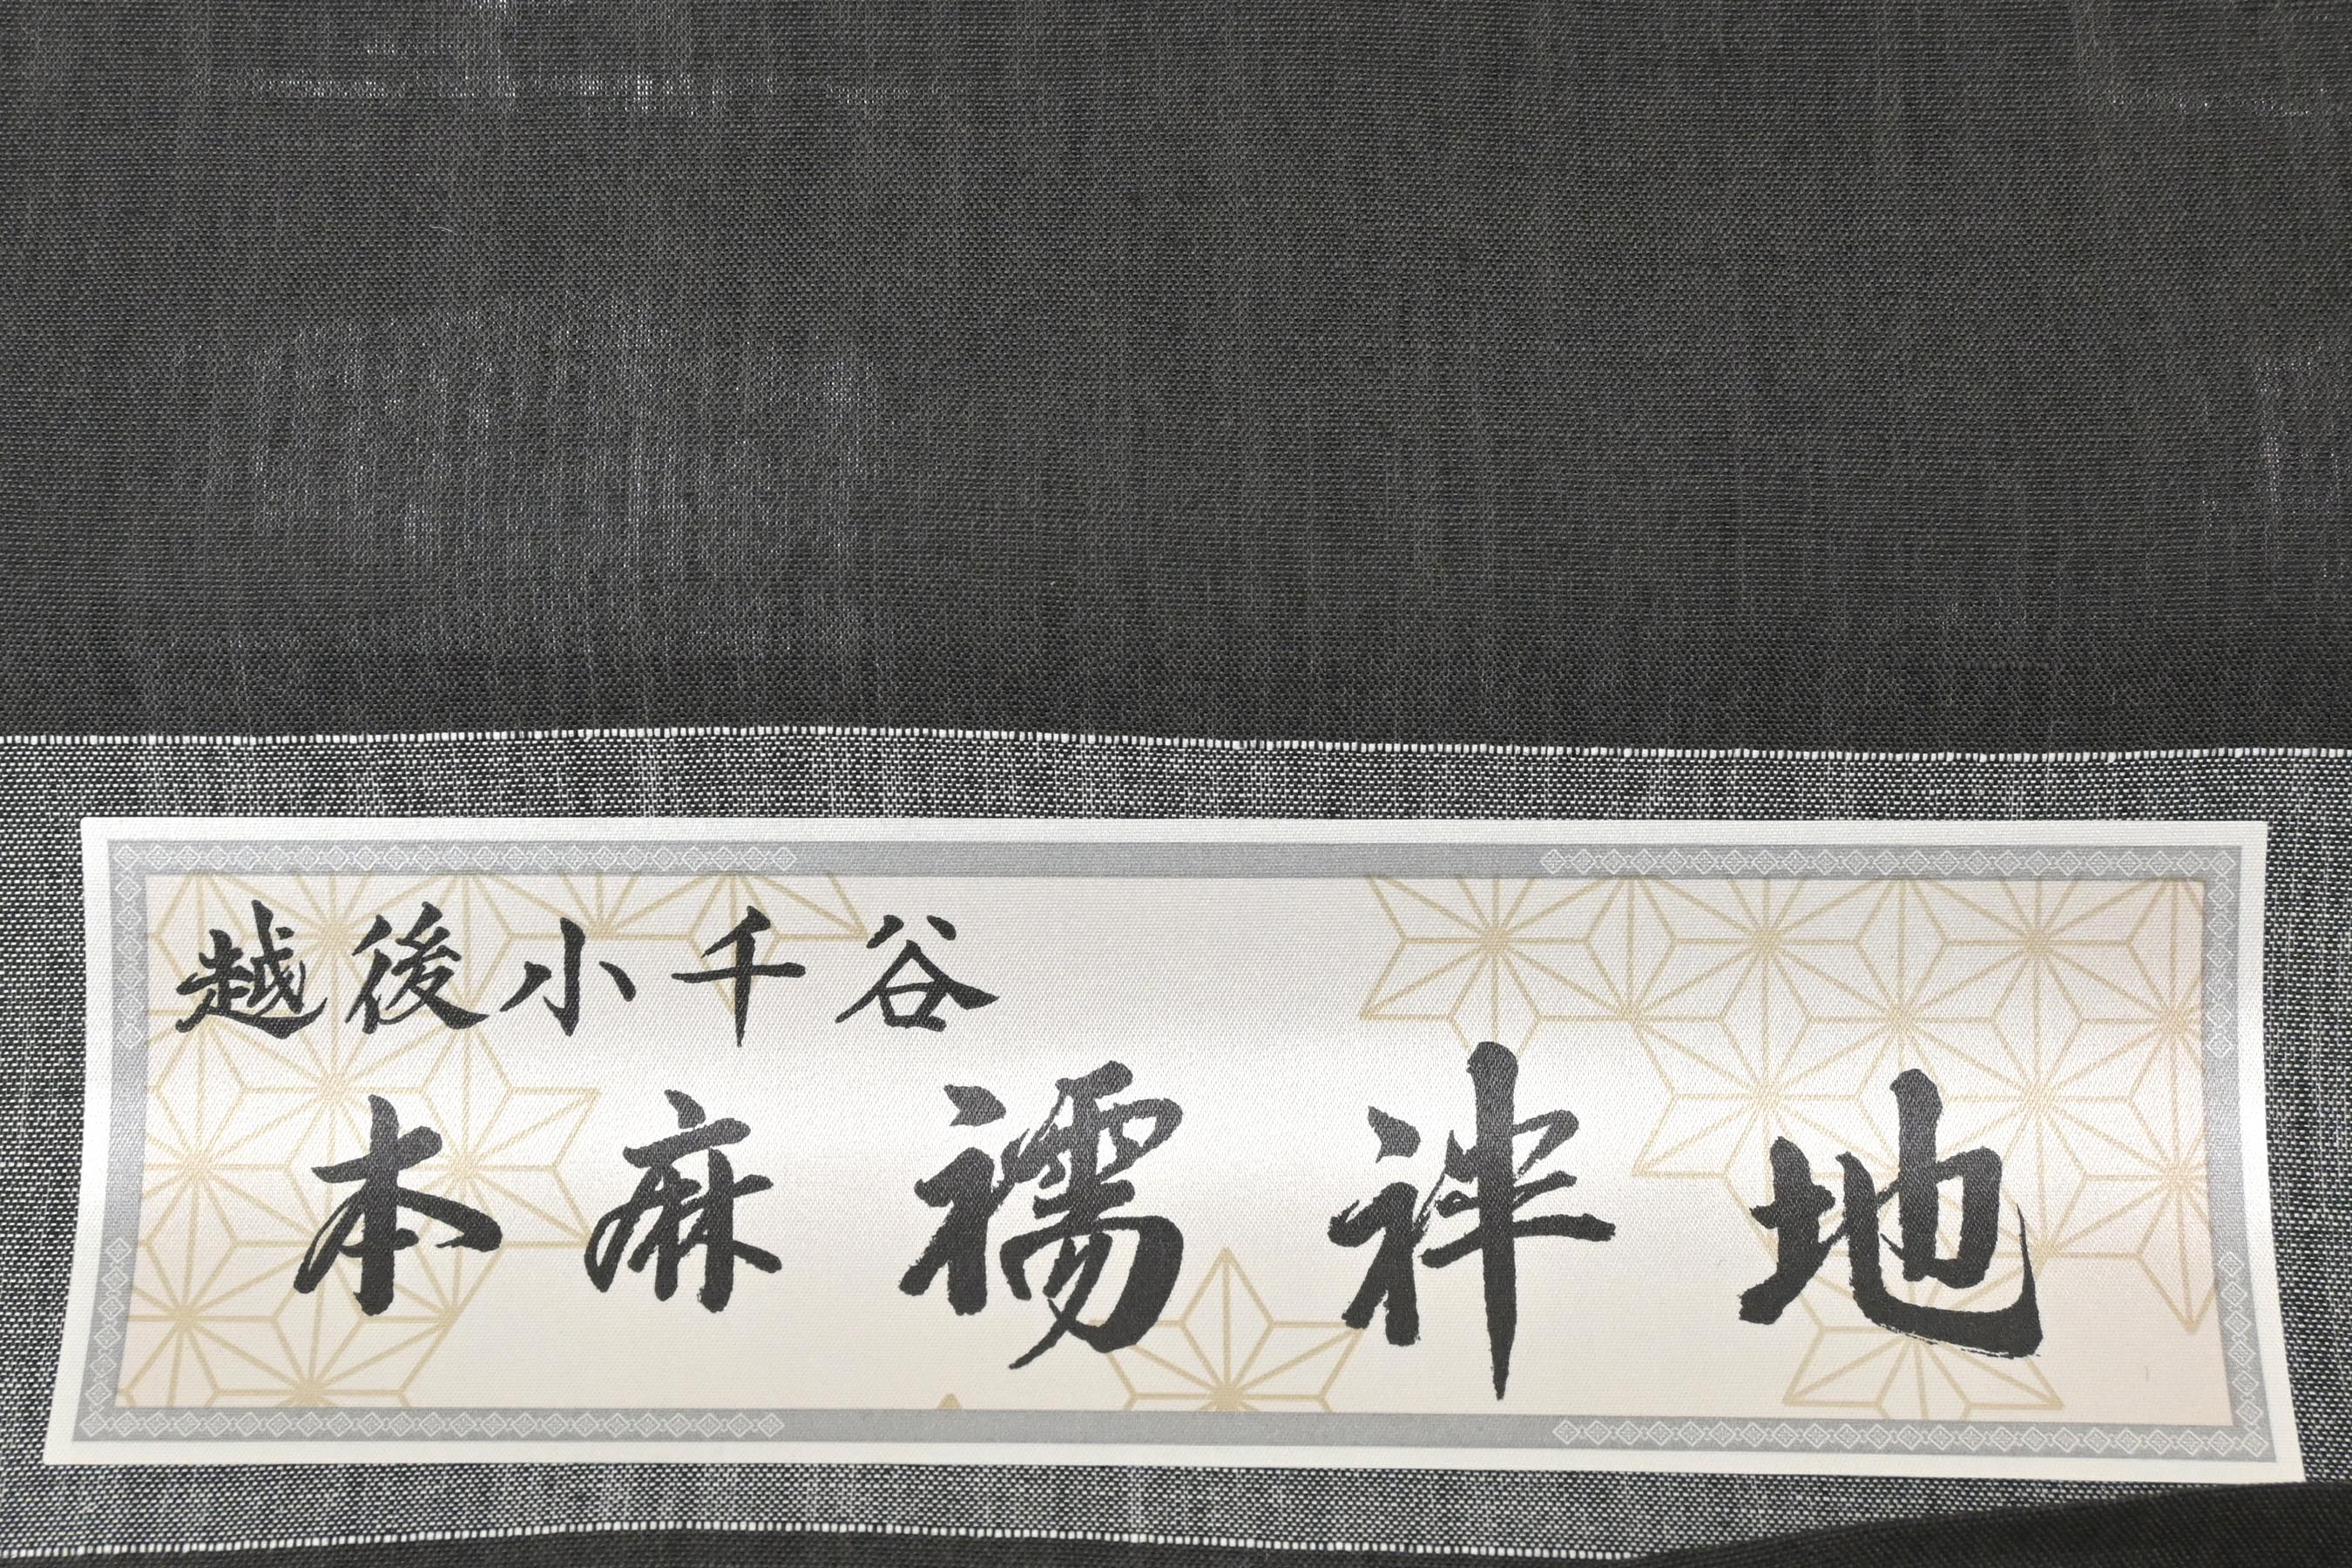 越後小千谷
本麻襦袢地